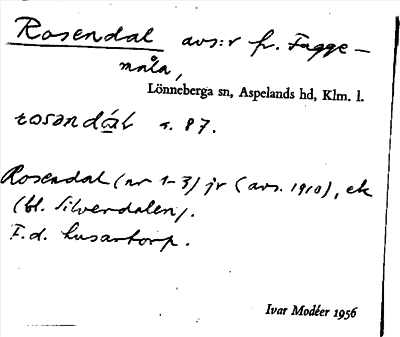 Rosendal avs:r fr. Fagge-
måla,
Lönneberga sn, Aspelands hd, Klm. l.
rosəndál s. 87.
Rosendal (nr 1-3) jr (avs. 1910), ek
(bl. Silverdalen).
F.d. husartorp.
Ivar Modéer 1956